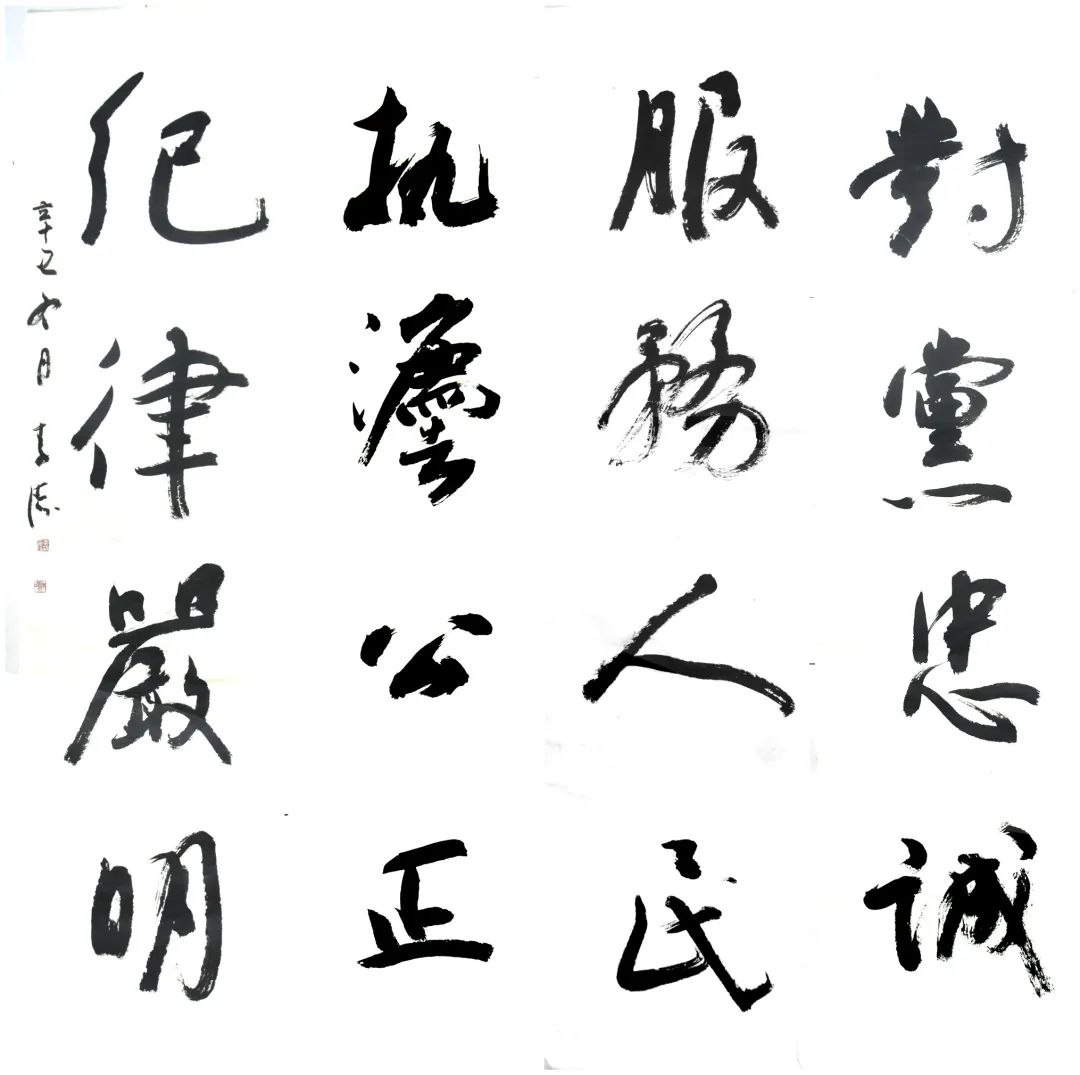 對黨忠誠
服務人民
執灋公正
紀律嚴明
辛丑七月